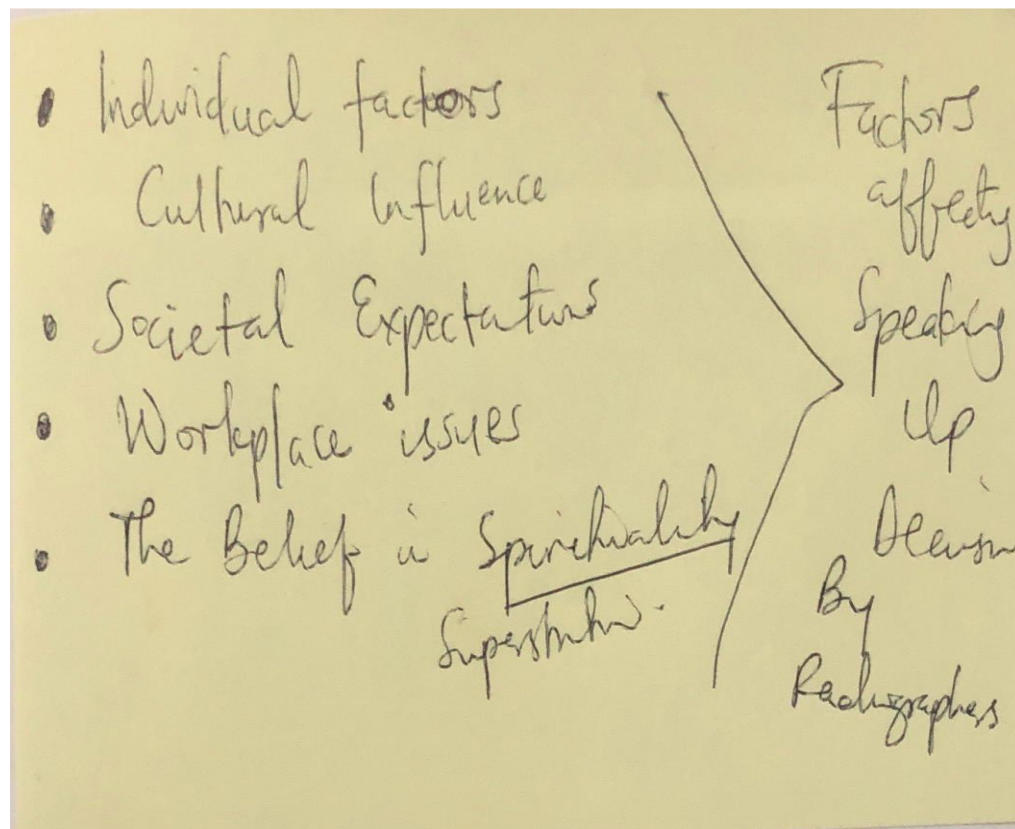 Individual factors
Cultural Influence
Societal Expectations
Workplace issues
The Belief in Spirituality
Superstition.
Factors
affecting
Speaking
Up
Decision
By
Radiographers